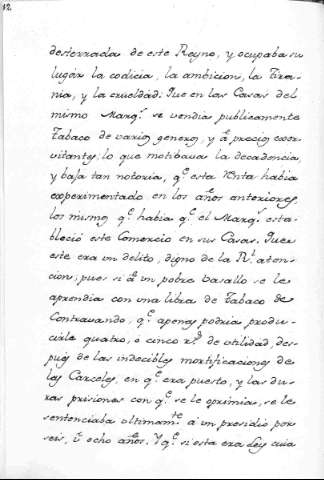 12
desterrada de este Reyno, y ocupaba su
lugar la codicia, la ambicion, la Tira-
nia, y la crueldad: Que en las Casas del
mismo Marq.s se vendia publicamente
Tabaco de varios generos, y â precios exor-
vitantes; lo que motibava la decadencia,
y baja tan notoria, q.e esta Renta habia
experimentado en los años anteriores,
los mismos q.e habia q.e el Marq.s esta-
bleció este Comercio en sus Casas. Que
este era un delito, digno de la R.l aten-
cion; pues si â un pobre basallo se le
aprendia con una libra de Tabaco de
Contravando, q.e apenas podria produ-
cirle quatro, o cinco r.s de utilidad, des-
pués de las indecibles mortificaciones de
las Carceles, en q.e era puesto, y las du-
ras prisiones con q.e se le oprimia, se le
sentenciaba ultimam.te a un presidio por
seis, û ocho años. Y q.e si esta era Ley cuia